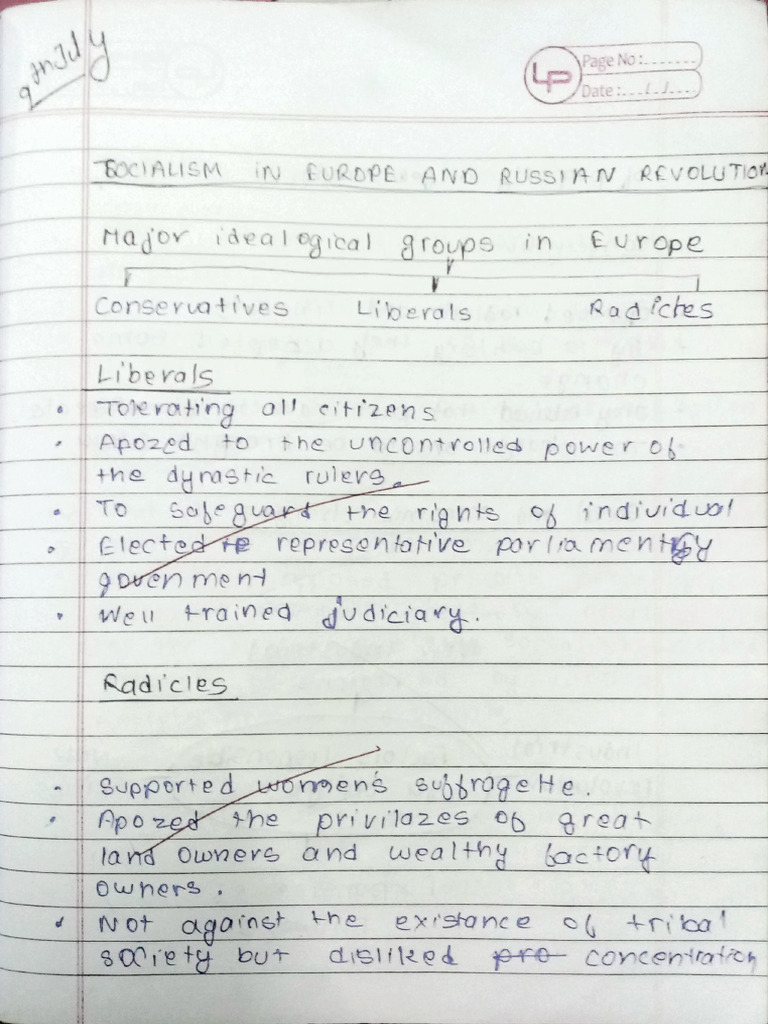 9th July
LP
Page No:.......
Date:..../..../....
SOCIALISM IN EUROPE AND RUSSIAN REVOLUTION
Major idealogical groups in Europe
Conservatives Liberals Radicles
Liberals
• Tolerating all citizens
• Apozed to the uncontrolled power of
the dynastic rulers.
• To safeguard the rights of individual
• Elected representative parliamentry
government
• Well trained judiciary.
Radicles
• Supported women's suffragette.
• Apozed the privilazes of great
land owners and wealthy factory
owners.
• Not against the existance of tribal
society but disliked pro concentration